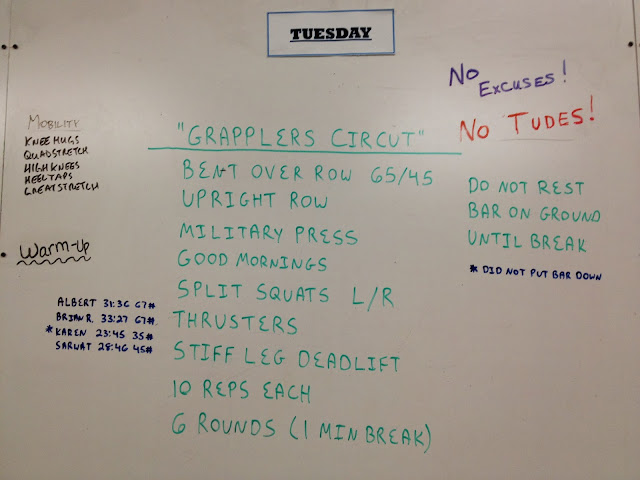 TUESDAY
No
EXCUSES!
No TUDES!
MOBILITY
KNEE HUGS
QUADSTRETCH
HIGH KNEES
HEEL TAPS
GREAT STRETCH
WARM-UP
"GRAPPLERS CIRCUT"
BENT OVER ROW 65/45
UPRIGHT ROW
MILITARY PRESS
GOOD MORNINGS
SPLIT SQUATS L/R
THRUSTERS
STIFF LEG DEADLIFT
10 REPS EACH
6 ROUNDS (1 MIN BREAK)
DO NOT REST
BAR ON GROUND
UNTIL BREAK
* DID NOT PUT BAR DOWN
ALBERT 31:36 67#
BRIAN R. 33:27 67#
* KAREN 23:45 35#
SARWAT 28:46 45#